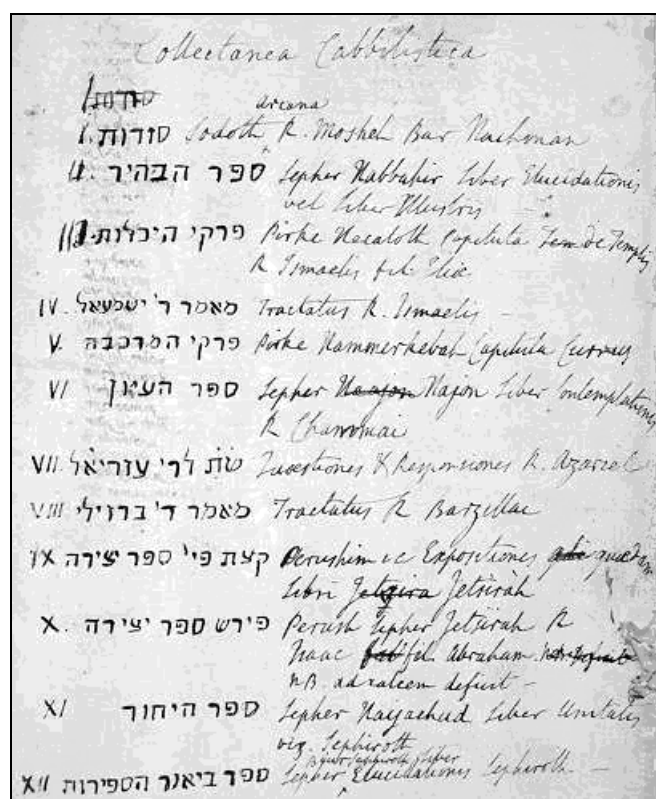 Collectanea Cabbilistica
סודות
arcana
I. סודות Sodoth R. Mosheh Bar Nachman
II. ספר הבהיר Sepher Habbahir Liber Elucidationis
vel Liber Illustris -
III. פרקי היכלות Pirke Hecaloth Capitula de Templis
R Ismaelis fil Eliae
IV. מאמר ר' ישמעאל Tractatus R. Ismaelis -
V. פרקי המרכבה Pirke Hammerkebah Capitula Currus
VI ספר העיון Sepher Hajon Liber Contemplationis
R Chammai
VII. שות לר' עזריאל Quaestiones & Responsiones R. Azariel
VIII מאמר ר' ברזילי Tractatus R Barzillae
IX קצת פי' ספר יצירה Perushim i.e Expositiones quaedam
Libri Jetzira Jetsiràh
X. פירש ספר יצירה Perush Sepher Jetsirah R
Isaac fil Abraham
NB. ad calcem deficit -
XI ספר היחוד Sepher Hayachud Liber Unitatis
viz. Sephiroth
XII ספר ביאור הספירות Sepher Elucidationis Sephiroth -